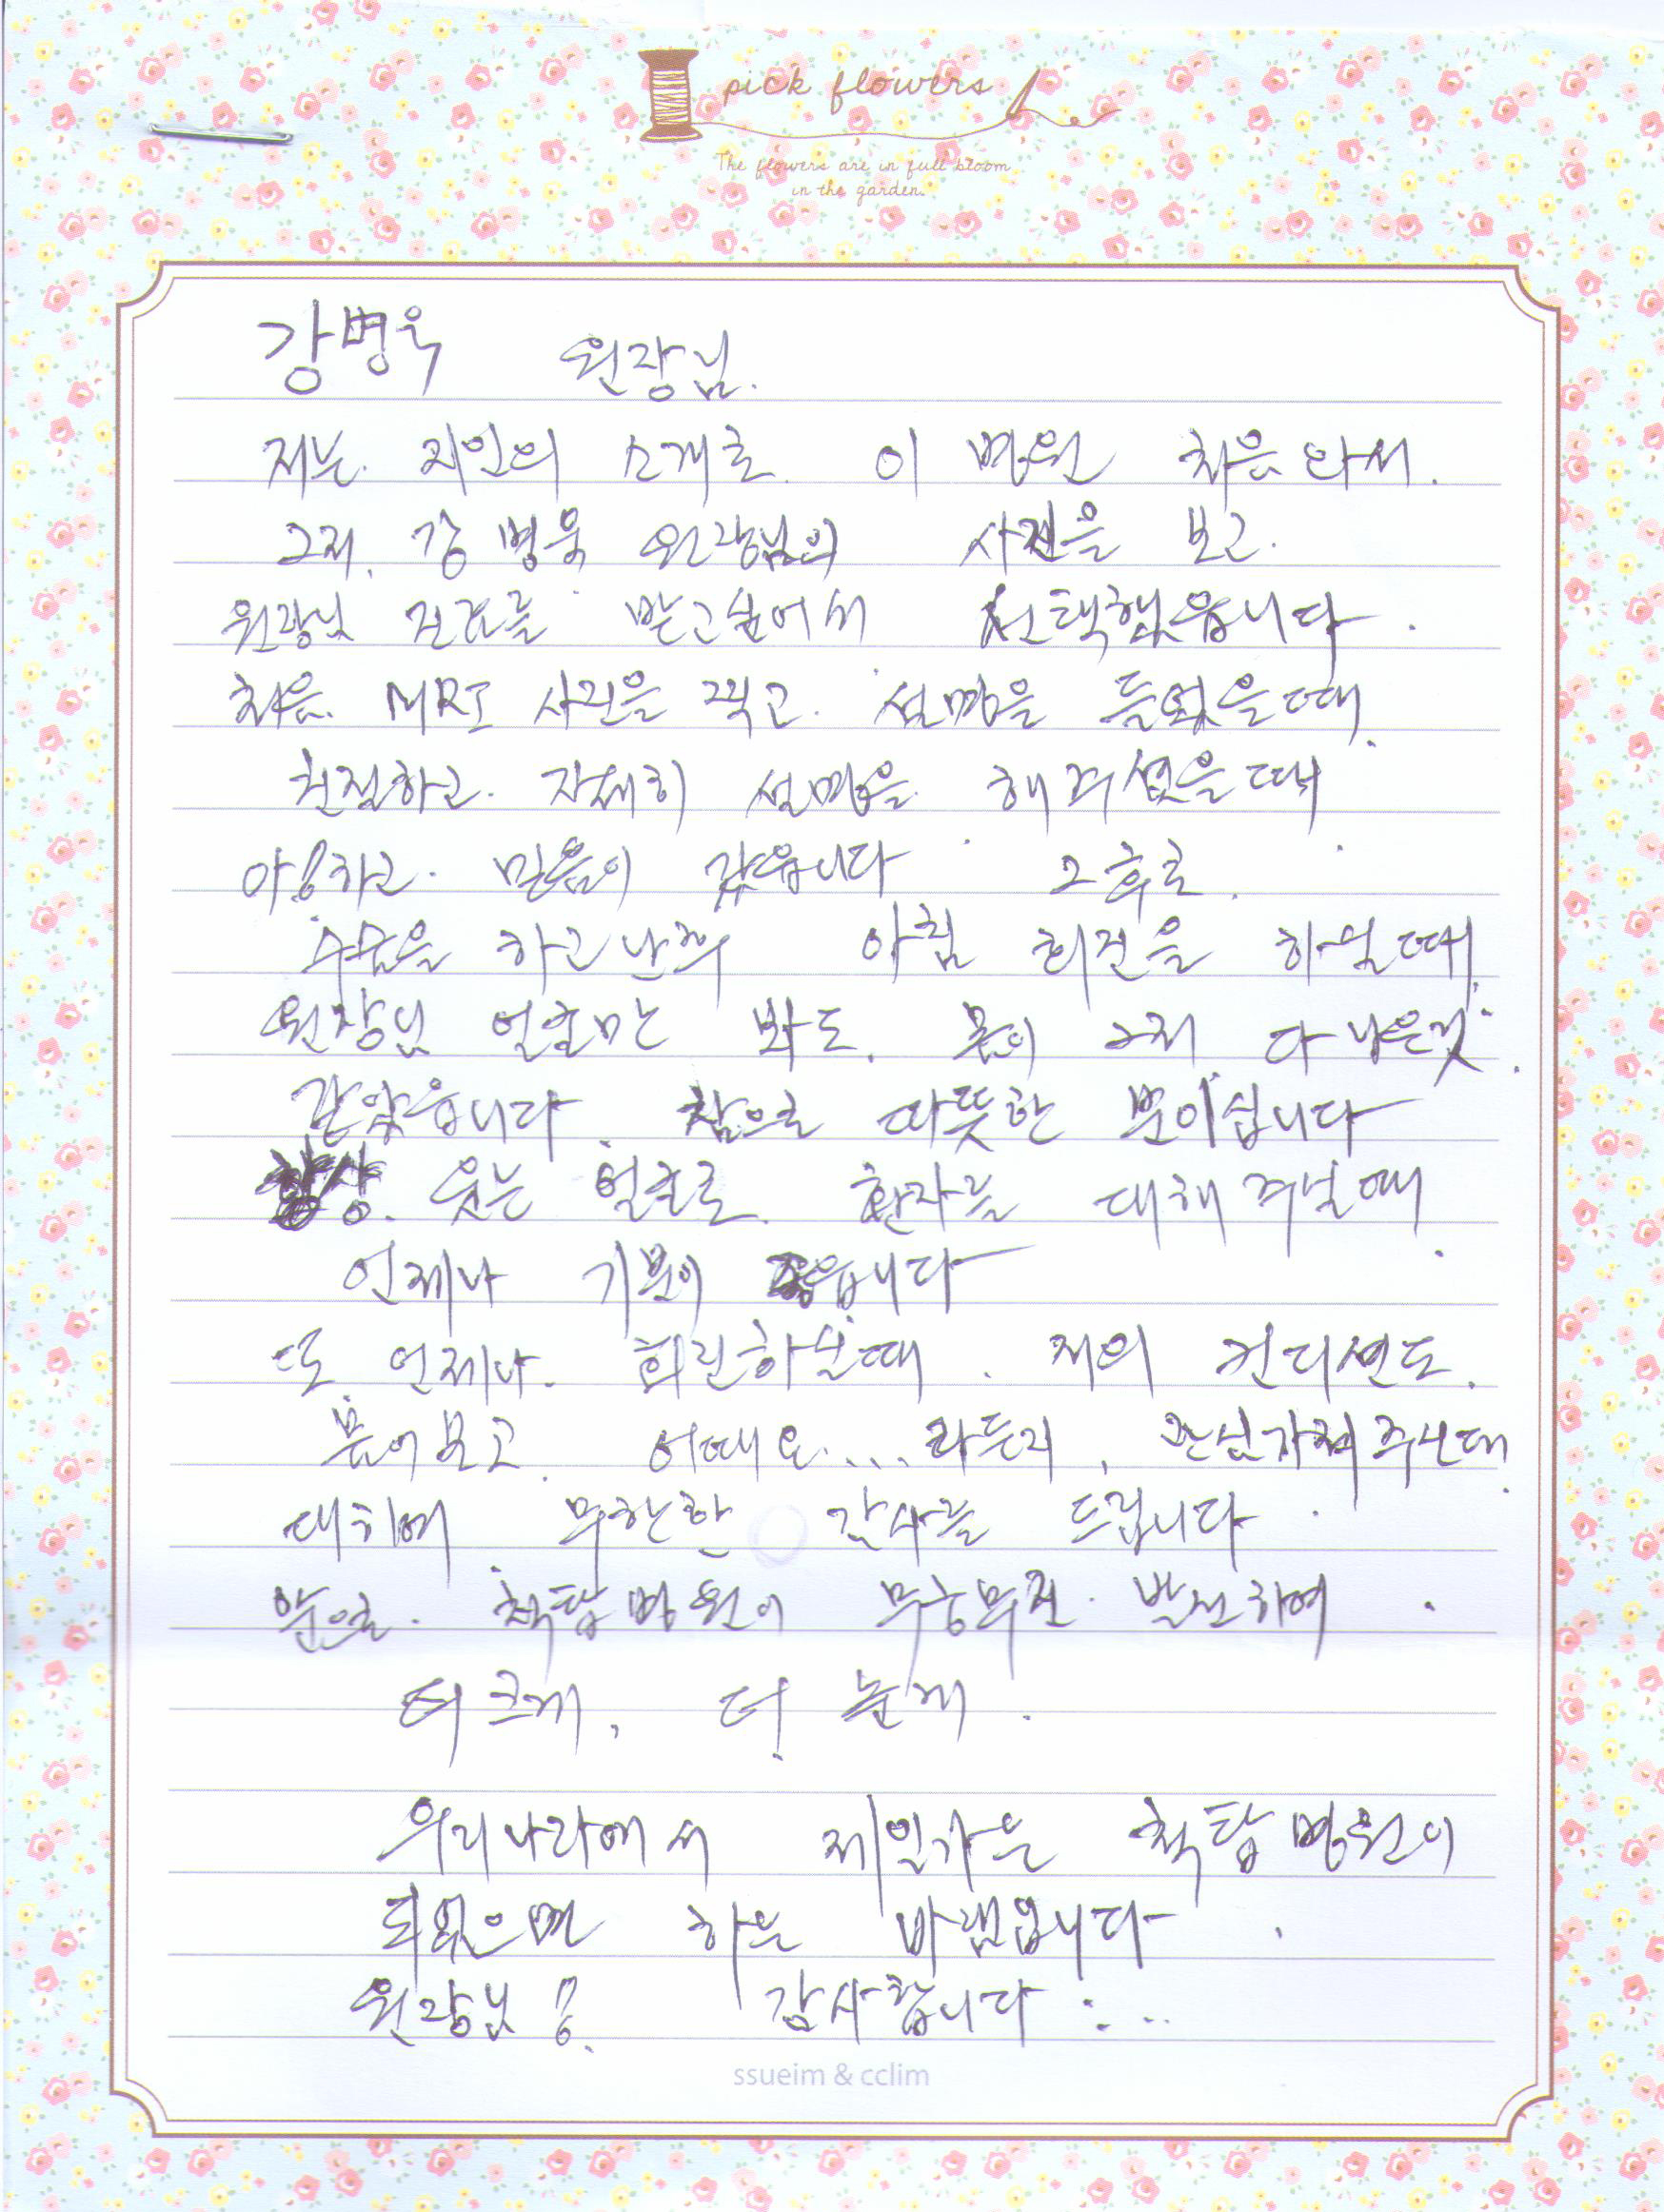 pick flowers
The flowers are in full bloom
in the garden.
강병욱 원장님.
저는. 지인의 소개로. 이 병원 처음 와서.
그저. 강병욱 원장님의 사진을 보고.
원장님 진료를 받고 싶어서 선택했읍니다.
처음. MRI 사진을 찍고. 설명을 들었을때.
친절하고. 자세히 설명을. 해주셨을때.
아!하고. 믿음이 갔읍니다. 그후로.
수술을 하고난후 아침 회진을 하실때.
원장님 얼굴만 봐도. 몸이 그저 다 낳은것.
같았읍니다. 참으로 따뜻한 분이십니다
항상. 웃는 얼굴로. 환자를 대해주실때.
언제나 기분이 좋읍니다
또. 언제나. 회진하실때. 저의 컨디션도.
물어보고. 어때요... 라든지, 관심가져주신데.
대하여 무한한 감사를 드립니다.
앞으로. 척탑병원이 무궁무진. 발전하여.
더 크게, 더 높게.
우리나라에서 제일가는 척탑병원이
되었으면 하는 바램입니다.
원장님! 감사합니다...
ssueim & cclim